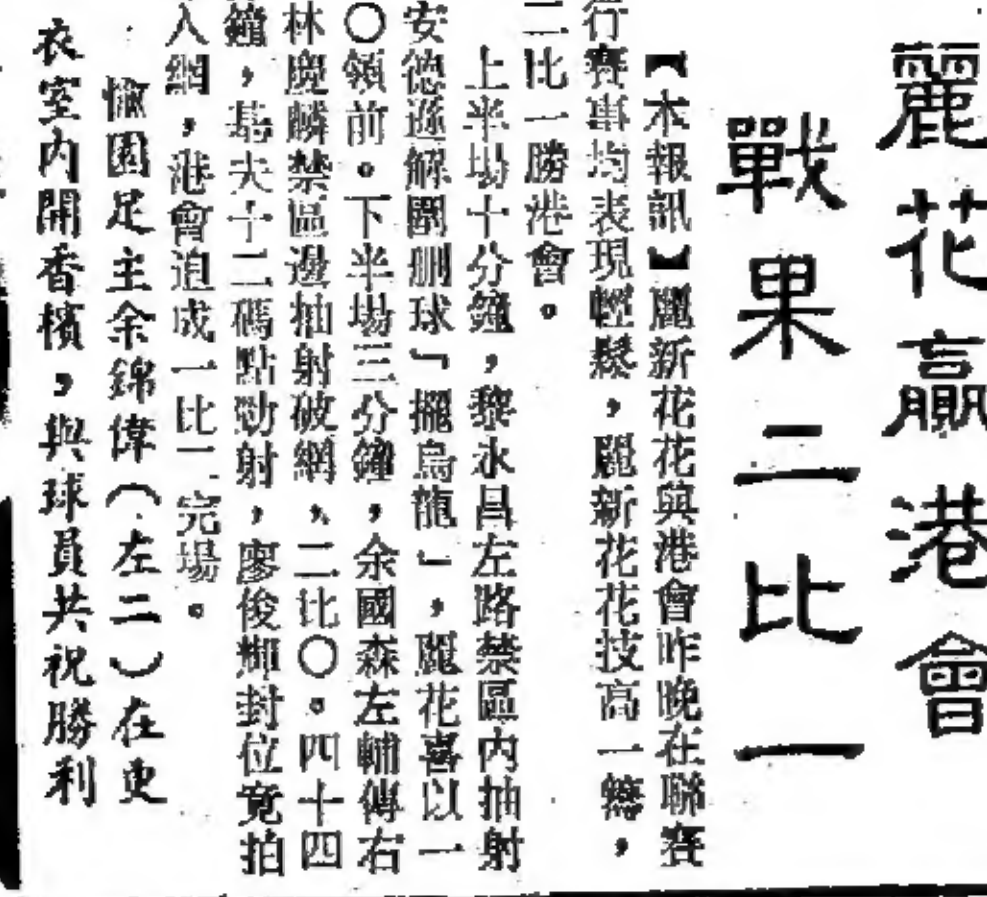 麗花贏港會
戰果二比一
【本報訊】麗新花花與港會昨晚在聯賽
行賽事均表現輕鬆，麗新花花技高一籌，
二比一勝港會。
上半場十分鐘，黎永昌左路禁區內抽射
安德遜解圍刪球『擺烏龍』，麗花喜以一
○領前。下半場三分鐘，余國森左輔傳右
林慶麟禁區邊抽射破網、二比○。四十四
鐘，基夫十二碼點勁射，廖俊輝封位竟拍
入網，港會迫成一比二完場。
愉園足主余錦偉（左二）在更
衣室內開香檳，與球員共祝勝利